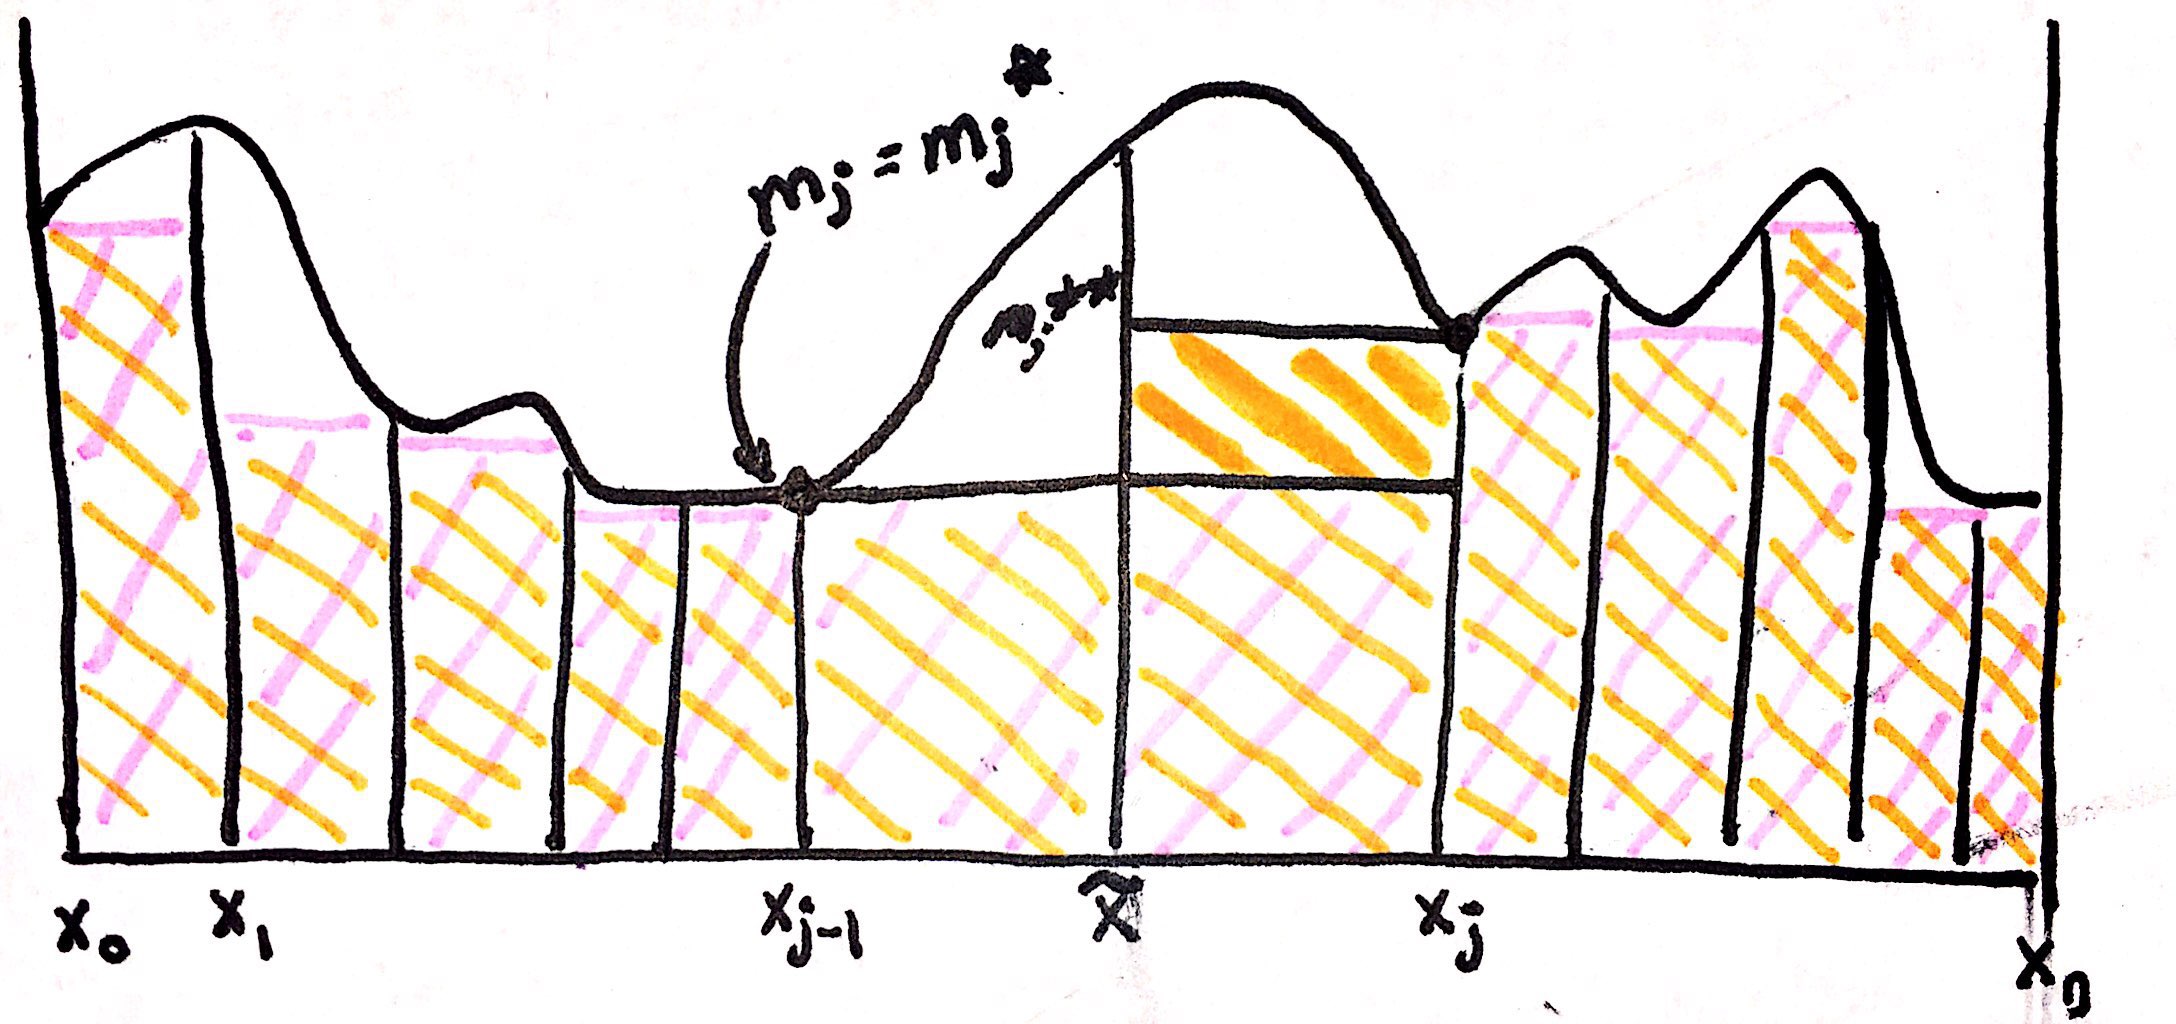 mj = mj*
mj**
x₀ x₁ xj-1 x̃ xj xₙ